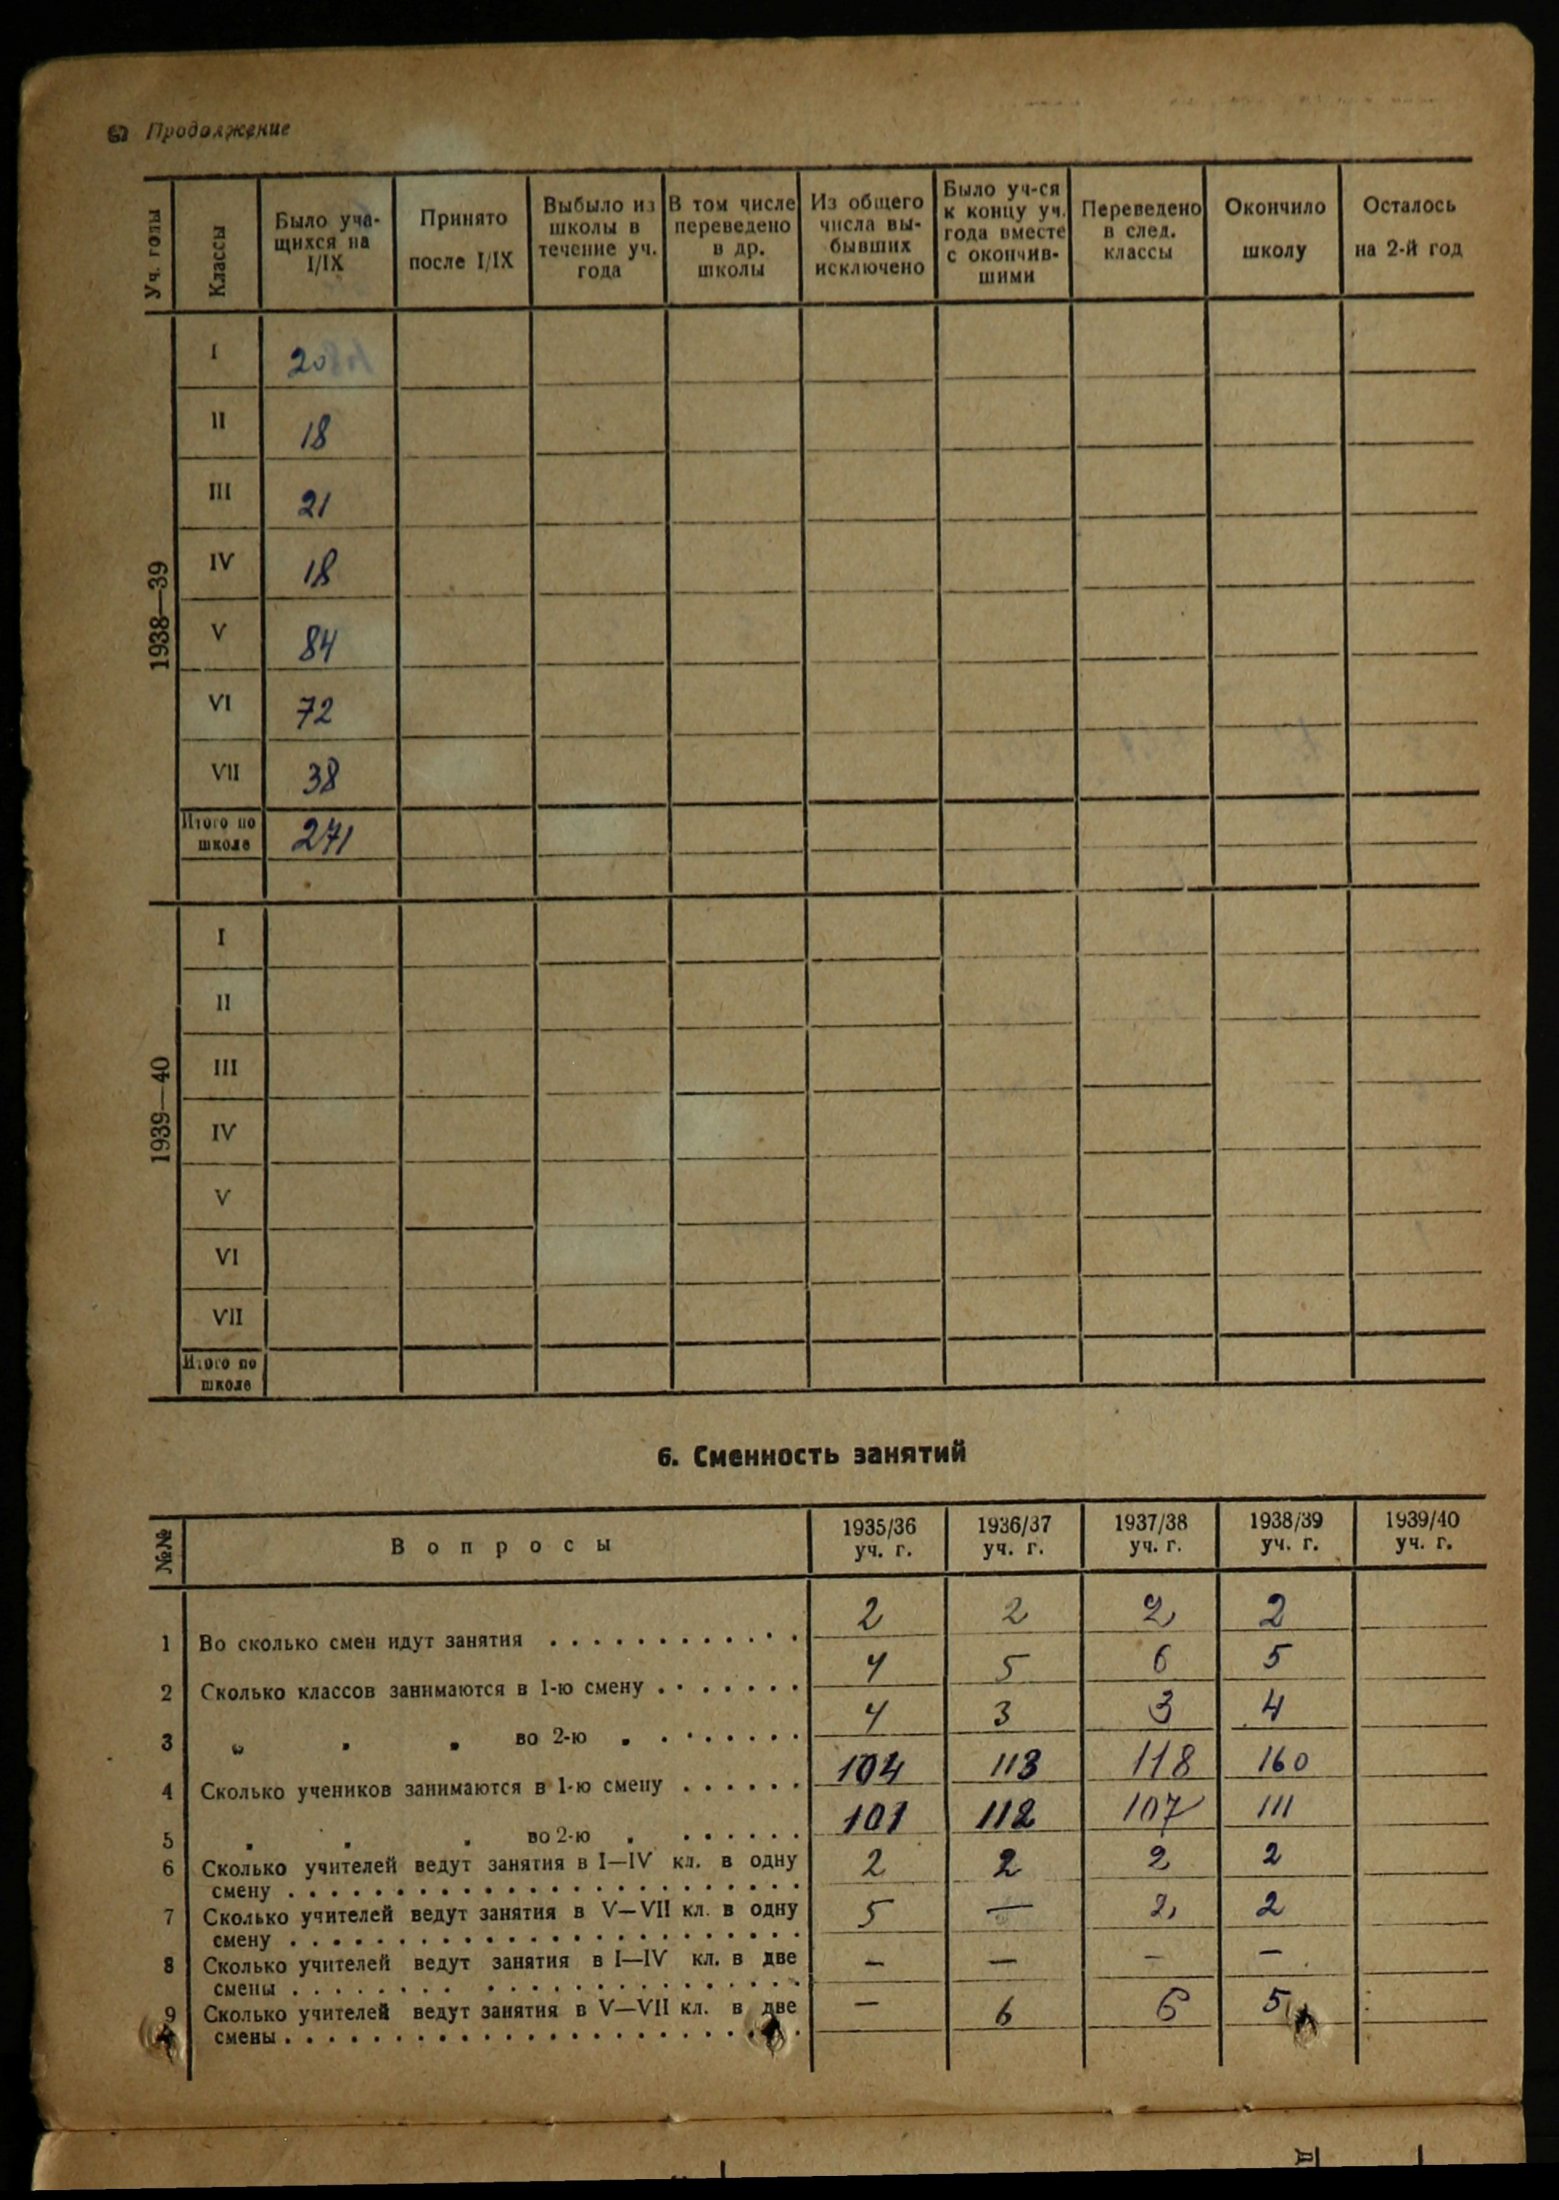 Продолжение
Уч. годы | Классы | Было учащихся на I/IX | Принято после I/IX | Выбыло из школы в течение уч. года | В том числе переведено в др. школы | Из общего числа выбывших исключено | Было уч-ся к концу уч. года вместе с окончившими | Переведено в след. классы | Окончило школу | Осталось на 2-й год
1938—39
I 20
II 18
III 21
IV 18
V 84
VI 72
VII 38
Итого по школе 271
1939—40
I
II
III
IV
V
VI
VII
Итого по школе
6. Сменность занятий
№№ | Вопросы | 1935/36 уч. г. | 1936/37 уч. г. | 1937/38 уч. г. | 1938/39 уч. г. | 1939/40 уч. г.
1 Во сколько смен идут занятия . . . . 2 2 2 2
2 Сколько классов занимаются в 1-ю смену . . . . 4 5 6 5
3 „ „ „ во 2-ю „ . . . . 4 3 3 4
4 Сколько учеников занимаются в 1-ю смену . . . . 104 113 118 160
5 „ „ „ во 2-ю „ . . . . 101 112 107 111
6 Сколько учителей ведут занятия в I—IV кл. в одну
смену . . . . 2 2 2 2
7 Сколько учителей ведут занятия в V—VII кл. в одну
смену . . . . 5 — 2 2
8 Сколько учителей ведут занятия в I—IV кл. в две
смены . . . . — — — —
9 Сколько учителей ведут занятия в V—VII кл. в две
смены . . . . — 6 6 5